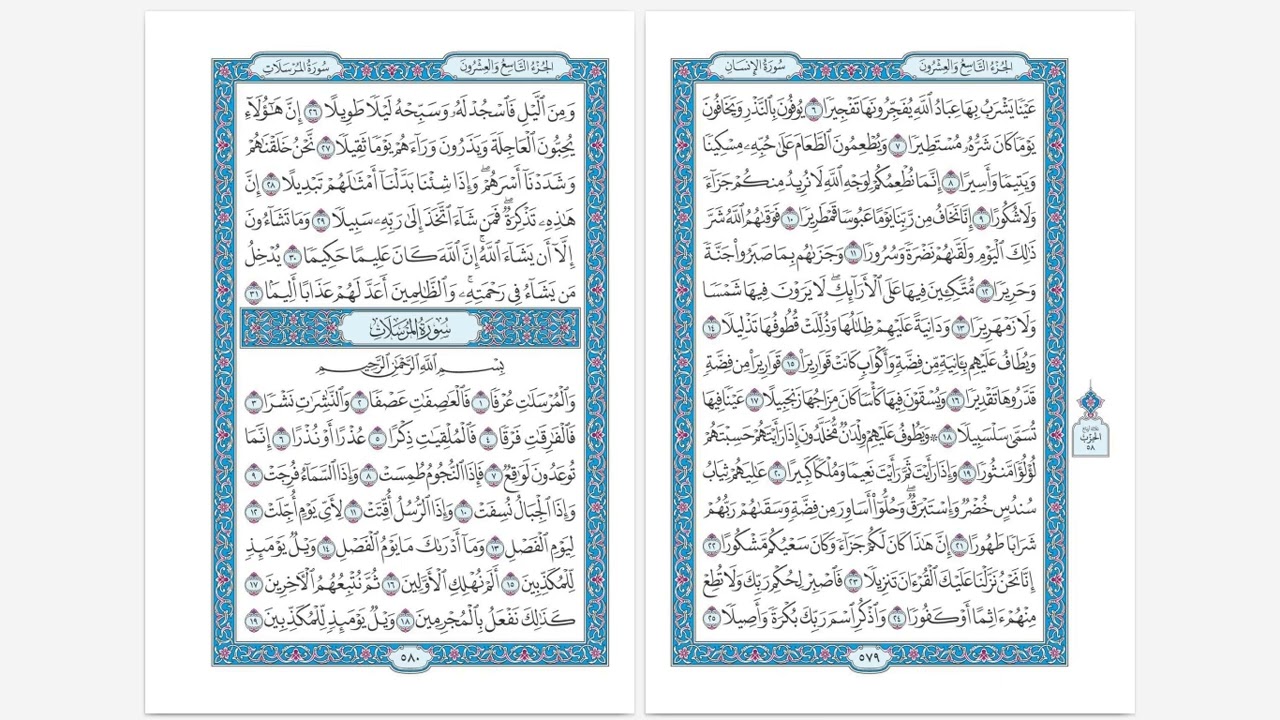 الجُزءُ التَّاسِعُ وَالعِشْرُونَ
سُورَةُ الإِنسَانِ
عَيْنًا يَشْرَبُ بِهَا عِبَادُ ٱللَّهِ يُفَجِّرُونَهَا تَفْجِيرًا ٦ يُوفُونَ بِٱلنَّذْرِ وَيَخَافُونَ
يَوْمًا كَانَ شَرُّهُۥ مُسْتَطِيرًا ٧ وَيُطْعِمُونَ ٱلطَّعَامَ عَلَىٰ حُبِّهِۦ مِسْكِينًا
وَيَتِيمًا وَأَسِيرًا ٨ إِنَّمَا نُطْعِمُكُمْ لِوَجْهِ ٱللَّهِ لَا نُرِيدُ مِنكُمْ جَزَآءً
وَلَا شُكُورًا ٩ إِنَّا نَخَافُ مِن رَّبِّنَا يَوْمًا عَبُوسًا قَمْطَرِيرًا ١٠ فَوَقَىٰهُمُ ٱللَّهُ شَرَّ
ذَٰلِكَ ٱلْيَوْمِ وَلَقَّىٰهُمْ نَضْرَةً وَسُرُورًا ١١ وَجَزَىٰهُم بِمَا صَبَرُوا۟ جَنَّةً
وَحَرِيرًا ١٢ مُّتَّكِـِٔينَ فِيهَا عَلَى ٱلْأَرَآئِكِ ۖ لَا يَرَوْنَ فِيهَا شَمْسًا
وَلَا زَمْهَرِيرًا ١٣ وَدَانِيَةً عَلَيْهِمْ ظِلَٰلُهَا وَذُلِّلَتْ قُطُوفُهَا تَذْلِيلًا ١٤
وَيُطَافُ عَلَيْهِم بِـَٔانِيَةٍ مِّن فِضَّةٍ وَأَكْوَابٍ كَانَتْ قَوَارِيرَا۠ ١٥ قَوَارِيرَا۟ مِن فِضَّةٍ
قَدَّرُوهَا تَقْدِيرًا ١٦ وَيُسْقَوْنَ فِيهَا كَأْسًا كَانَ مِزَاجُهَا زَنجَبِيلًا ١٧ عَيْنًا فِيهَا
تُسَمَّىٰ سَلْسَبِيلًا ١٨ ۞ وَيَطُوفُ عَلَيْهِمْ وِلْدَٰنٌ مُّخَلَّدُونَ إِذَا رَأَيْتَهُمْ حَسِبْتَهُمْ
لُؤْلُؤًا مَّنثُورًا ١٩ وَإِذَا رَأَيْتَ ثَمَّ رَأَيْتَ نَعِيمًا وَمُلْكًا كَبِيرًا ٢٠ عَٰلِيَهُمْ ثِيَابُ
سُندُسٍ خُضْرٌ وَإِسْتَبْرَقٌ ۖ وَحُلُّوٓا۟ أَسَاوِرَ مِن فِضَّةٍ وَسَقَىٰهُمْ رَبُّهُمْ
شَرَابًا طَهُورًا ٢١ إِنَّ هَٰذَا كَانَ لَكُمْ جَزَآءً وَكَانَ سَعْيُكُم مَّشْكُورًا ٢٢
إِنَّا نَحْنُ نَزَّلْنَا عَلَيْكَ ٱلْقُرْءَانَ تَنزِيلًا ٢٣ فَٱصْبِرْ لِحُكْمِ رَبِّكَ وَلَا تُطِعْ
مِنْهُمْ ءَاثِمًا أَوْ كَفُورًا ٢٤ وَٱذْكُرِ ٱسْمَ رَبِّكَ بُكْرَةً وَأَصِيلًا ٢٥
٥٧٩
الحِزْبُ
٥٨
الجُزءُ التَّاسِعُ وَالعِشْرُونَ
سُورَةُ المُرْسَلَاتِ
وَمِنَ ٱلَّيْلِ فَٱسْجُدْ لَهُۥ وَسَبِّحْهُ لَيْلًا طَوِيلًا ٢٦ إِنَّ هَٰٓؤُلَآءِ
يُحِبُّونَ ٱلْعَاجِلَةَ وَيَذَرُونَ وَرَآءَهُمْ يَوْمًا ثَقِيلًا ٢٧ نَّحْنُ خَلَقْنَٰهُمْ
وَشَدَدْنَآ أَسْرَهُمْ ۖ وَإِذَا شِئْنَا بَدَّلْنَآ أَمْثَٰلَهُمْ تَبْدِيلًا ٢٨ إِنَّ
هَٰذِهِۦ تَذْكِرَةٌ ۖ فَمَن شَآءَ ٱتَّخَذَ إِلَىٰ رَبِّهِۦ سَبِيلًا ٢٩ وَمَا تَشَآءُونَ
إِلَّآ أَن يَشَآءَ ٱللَّهُ ۚ إِنَّ ٱللَّهَ كَانَ عَلِيمًا حَكِيمًا ٣٠ يُدْخِلُ
مَن يَشَآءُ فِى رَحْمَتِهِۦ ۚ وَٱلظَّٰلِمِينَ أَعَدَّ لَهُمْ عَذَابًا أَلِيمًۢا ٣١
سُورَةُ المُرْسَلَاتِ
بِسْمِ ٱللَّهِ ٱلرَّحْمَٰنِ ٱلرَّحِيمِ
وَٱلْمُرْسَلَٰتِ عُرْفًا ١ فَٱلْعَٰصِفَٰتِ عَصْفًا ٢ وَٱلنَّٰشِرَٰتِ نَشْرًا ٣
فَٱلْفَٰرِقَٰتِ فَرْقًا ٤ فَٱلْمُلْقِيَٰتِ ذِكْرًا ٥ عُذْرًا أَوْ نُذْرًا ٦ إِنَّمَا
تُوعَدُونَ لَوَٰقِعٌ ٧ فَإِذَا ٱلنُّجُومُ طُمِسَتْ ٨ وَإِذَا ٱلسَّمَآءُ فُرِجَتْ ٩
وَإِذَا ٱلْجِبَالُ نُسِفَتْ ١٠ وَإِذَا ٱلرُّسُلُ أُقِّتَتْ ١١ لِأَىِّ يَوْمٍ أُجِّلَتْ ١٢
لِيَوْمِ ٱلْفَصْلِ ١٣ وَمَآ أَدْرَىٰكَ مَا يَوْمُ ٱلْفَصْلِ ١٤ وَيْلٌ يَوْمَئِذٍ
لِّلْمُكَذِّبِينَ ١٥ أَلَمْ نُهْلِكِ ٱلْأَوَّلِينَ ١٦ ثُمَّ نُتْبِعُهُمُ ٱلْـَٔاخِرِينَ ١٧
كَذَٰلِكَ نَفْعَلُ بِٱلْمُجْرِمِينَ ١٨ وَيْلٌ يَوْمَئِذٍ لِّلْمُكَذِّبِينَ ١٩
٥٨٠